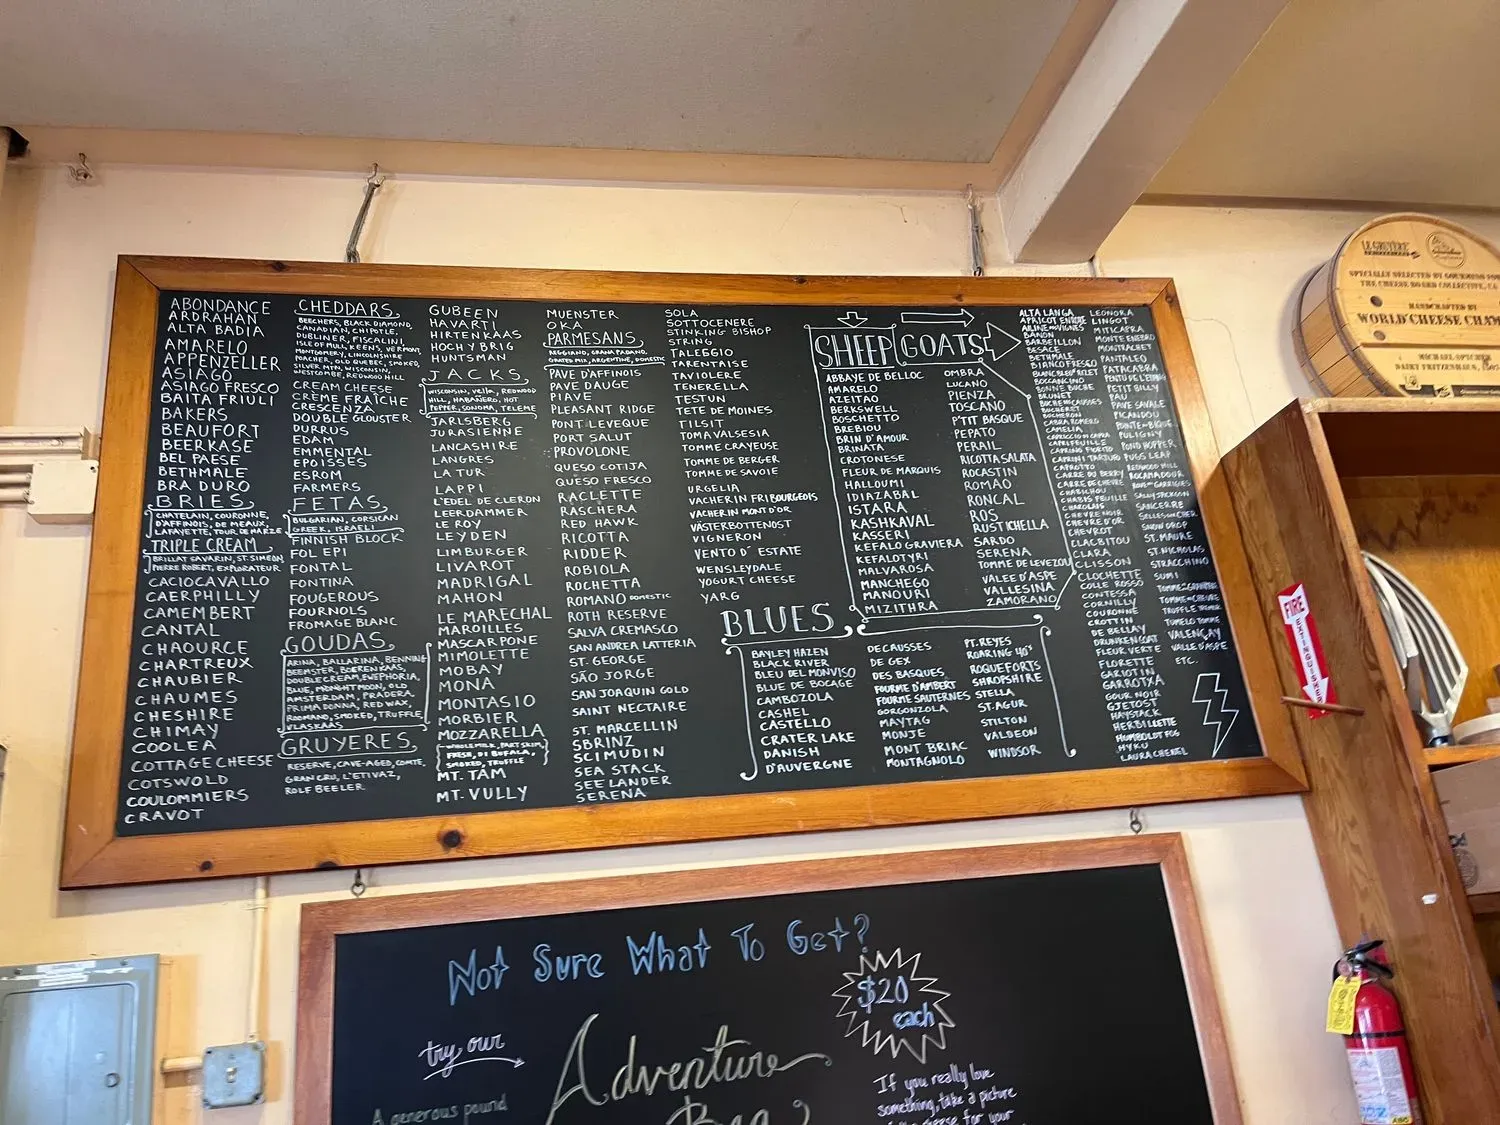 ABONDANCE
ARDRAHAN
ALTA BADIA
AMARELO
APPENZELLER
ASIAGO
ASIAGO FRESCO
BAITA FRIULI
BAKERS
BEAUFORT
BEERKASE
BEL PAESE
BETHMALE
BRA DURO
BRIES
CHATELAIN, COURONNE,
D'AFFINOIS, DE MEAUX,
LAFAYETTE, TOUR DE MARZE
TRIPLE CREAM
BRILLAT SAVARIN, ST. SIMEON,
PIERRE ROBERT, EXPLORATEUR
CACIOCAVALLO
CAERPHILLY
CAMEMBERT
CANTAL
CHAOURCE
CHARTREUX
CHAUBIER
CHAUMES
CHESHIRE
CHIMAY
COOLEA
COTTAGE CHEESE
COTSWOLD
COULOMMIERS
CRAVOT
CHEDDARS
BEECHERS, BLACK DIAMOND,
CANADIAN, CHIPOTLE,
DUBLINER, FISCALINI,
ISLE OF MULL, KEENS, VERMONT,
MONTGOMERY, LINCOLNSHIRE
POACHER, OLD QUEBEC, SMOKED,
SILVER MTN, WISCONSIN,
WESTCOMBE, REDWOOD HILL
CREAM CHEESE
CRÈME FRAÎCHE
CRESCENZA
DOUBLE GLOUSTER
DURRUS
EDAM
EMMENTAL
EPOISSES
ESROM
FARMERS
FETAS
BULGARIAN, CORSICAN
GREEK, ISRAELI
FINNISH BLOCK
FOL EPI
FONTAL
FONTINA
FOUGEROUS
FOURNOLS
FROMAGE BLANC
GOUDAS
ARINA, BALLARINA, BENNING
BEEMSTER, BOERENKAAS,
DOUBLE CREAM, EWEPHORIA,
BLUE, MIDNIGHT MOON, OLD
AMSTERDAM, PRADERA,
PRIMA DONNA, RED WAX,
ROOMANO, SMOKED, TRUFFLE,
VLASKAAS
GRUYERES
RESERVE, CAVE-AGED, COMTE,
GRAN CRU, L'ETIVAZ,
ROLF BEELER
GUBEEN
HAVARTI
HIRTENKAAS
HOCH YBRIG
HUNTSMAN
JACKS
WISCONSIN, VELLA, REDWOOD
HILL, HABAÑERO, HOT
PEPPER, SONOMA, TELEME
JARLSBERG
JURASIENNE
LANCASHIRE
LANGRES
LA TUR
LAPPI
L'EDEL DE CLERON
LEERDAMMER
LE ROY
LEYDEN
LIMBURGER
LIVAROT
MADRIGAL
MAHON
LE MARECHAL
MAROILLES
MASCARPONE
MIMOLETTE
MOBAY
MONA
MONTASIO
MORBIER
MOZZARELLA
WHOLE MILK, PART SKIM,
FRESH, DI BUFALA,
SMOKED, TRUFFLE
MT. TAM
MT. VULLY
MUENSTER
OKA
PARMESANS
REGGIANO, GRANA PADANO,
GRATED MIX, ARGENTINE, DOMESTIC
PAVE D'AFFINOIS
PAVE DAUGE
PIAVE
PLEASANT RIDGE
PONT LEVEQUE
PORT SALUT
PROVOLONE
QUESO COTIJA
QUESO FRESCO
RACLETTE
RASCHERA
RED HAWK
RICOTTA
RIDDER
ROBIOLA
ROCHETTA
ROMANO DOMESTIC
ROTH RESERVE
SALVA CREMASCO
SAN ANDREA LATTERIA
ST. GEORGE
SÃO JORGE
SAN JOAQUIN GOLD
SAINT NECTAIRE
ST. MARCELLIN
SBRINZ
SCIMUDIN
SEA STACK
SEELANDER
SERENA
SOLA
SOTTOCENERE
STINKING BISHOP
STRING
TALEGGIO
TARENTAISE
TAVIOLERE
TENERELLA
TESTUN
TETE DE MOINES
TILSIT
TOMA VALSESIA
TOMME CRAYEUSE
TOMME DE BERGER
TOMME DE SAVOIE
URGELIA
VACHERIN FRIBOURGEOIS
VACHERIN MONT D'OR
VÄSTERBOTTENOST
VIGNERON
VENTO D' ESTATE
WENSLEYDALE
YOGURT CHEESE
YARG
SHEEP
ABBAYE DE BELLOC
AMARELO
AZEITAO
BERKSWELL
BOSCHETTO
BREBIOU
BRIN D'AMOUR
BRINATA
CROTONESE
FLEUR DE MARQUIS
HALLOUMI
IDIAZABAL
ISTARA
KASHKAVAL
KASSERI
KEFALOGRAVIERA
KEFALOTYRI
MALVAROSA
MANCHEGO
MANOURI
MIZITHRA
OMBRA
LUCANO
PIENZA
TOSCANO
P'TIT BASQUE
PEPATO
PERAIL
RICOTTA SALATA
ROCASTIN
ROMÃO
RONCAL
ROS
RUSTICHELLA
SARDO
SERENA
TOME DE LEVEZOU
VALEE D'ASPE
VALLESINA
ZAMORANO
BLUES
BAYLEY HAZEN
BLACK RIVER
BLEU DEL MONVISO
BLUE DE BOCAGE
CAMBOZOLA
CASHEL
CASTELLO
CRATER LAKE
DANISH
D'AUVERGNE
DECAUSSES
DE GEX
DES BASQUES
FOURME D'AMBERT
FOURME SAUTERNES
GORGONZOLA
MAYTAG
MONJE
MONT BRIAC
MONTAGNOLO
PT. REYES
ROARING 40'S
ROQUEFORTS
SHROPSHIRE
STELLA
ST. AGUR
STILTON
VALDEON
WINDSOR
GOATS
ALTA LANGA
APRICOT ENTICE
BANON
BARBEILLON
BESACE
BETHMALE
BIANCO FRESCO
BOCCANCINO
BONNE BUCHE
BRUNET
BUCHE DES CAUSSES
BUCHERET
BUCHERON
CABRA ROMERO
CAMELIA
CAPRICCIO DI CAPRA
CAPRI FEUILLE
CAPRINI TARTUFO
CAPROTTO
CARRE DU BERRY
CARRE DE CHEVRE
CHABICHOU
CHABIS FEUILLE
CHAROLAIS
CHEVRE NOIR
CHEVRE D'OR
CHEVROT
CLACBITOU
CLARA
CLISSON
CLOCHETTE
COLLE ROSSO
CONTESSA
CORNILLY
COURONNE
CROTTIN
DE BELLAY
DRUNKEN GOAT
FLEUR VERTE
FLORETTE
GARIOTIN
GARROTXA
GOUR NOIR
GJETOST
HAYSTACK
HERBILLETTE
HUMBOLDT FOG
HYKU
LAURA CHENEL
LEONORA
LINGOT
MITICAPRA
MONTE ENEBRO
MONTRACHET
PANTALEO
PATACABRA
PETIT BILLY
PAU
PAVE SAUVAGE
PICANDOU
POINTE DE BIQUE
PULIGNY
POND HOPPER
PUGS LEAP
REDWOOD HILL
ROCAMADOUR
ROVE DES GARRIGUES
SALLY JACKSON
SANCERRE
SELLES SUR CHER
SNOW DROP
ST. MAURE
ST. NICHOLAS
STRACCHINO
SUMI
TOMME DE CHEVRE
TRUFFLE TREMOR
TUMELO TOMME
VALENÇAY
VALLE D'ASPE
ETC.
LE GRUYÈRE
SPECIALLY SELECTED BY GOURMINO FOR
THE CHEESE BOARD COLLECTIVE, CA
HANDCRAFTED BY
WORLD CHEESE CHAM
FIRE
EXTINGUISHER
Not Sure What To Get?
$20
each
try our
Adventure
A generous pound
If you really love
something, take a picture